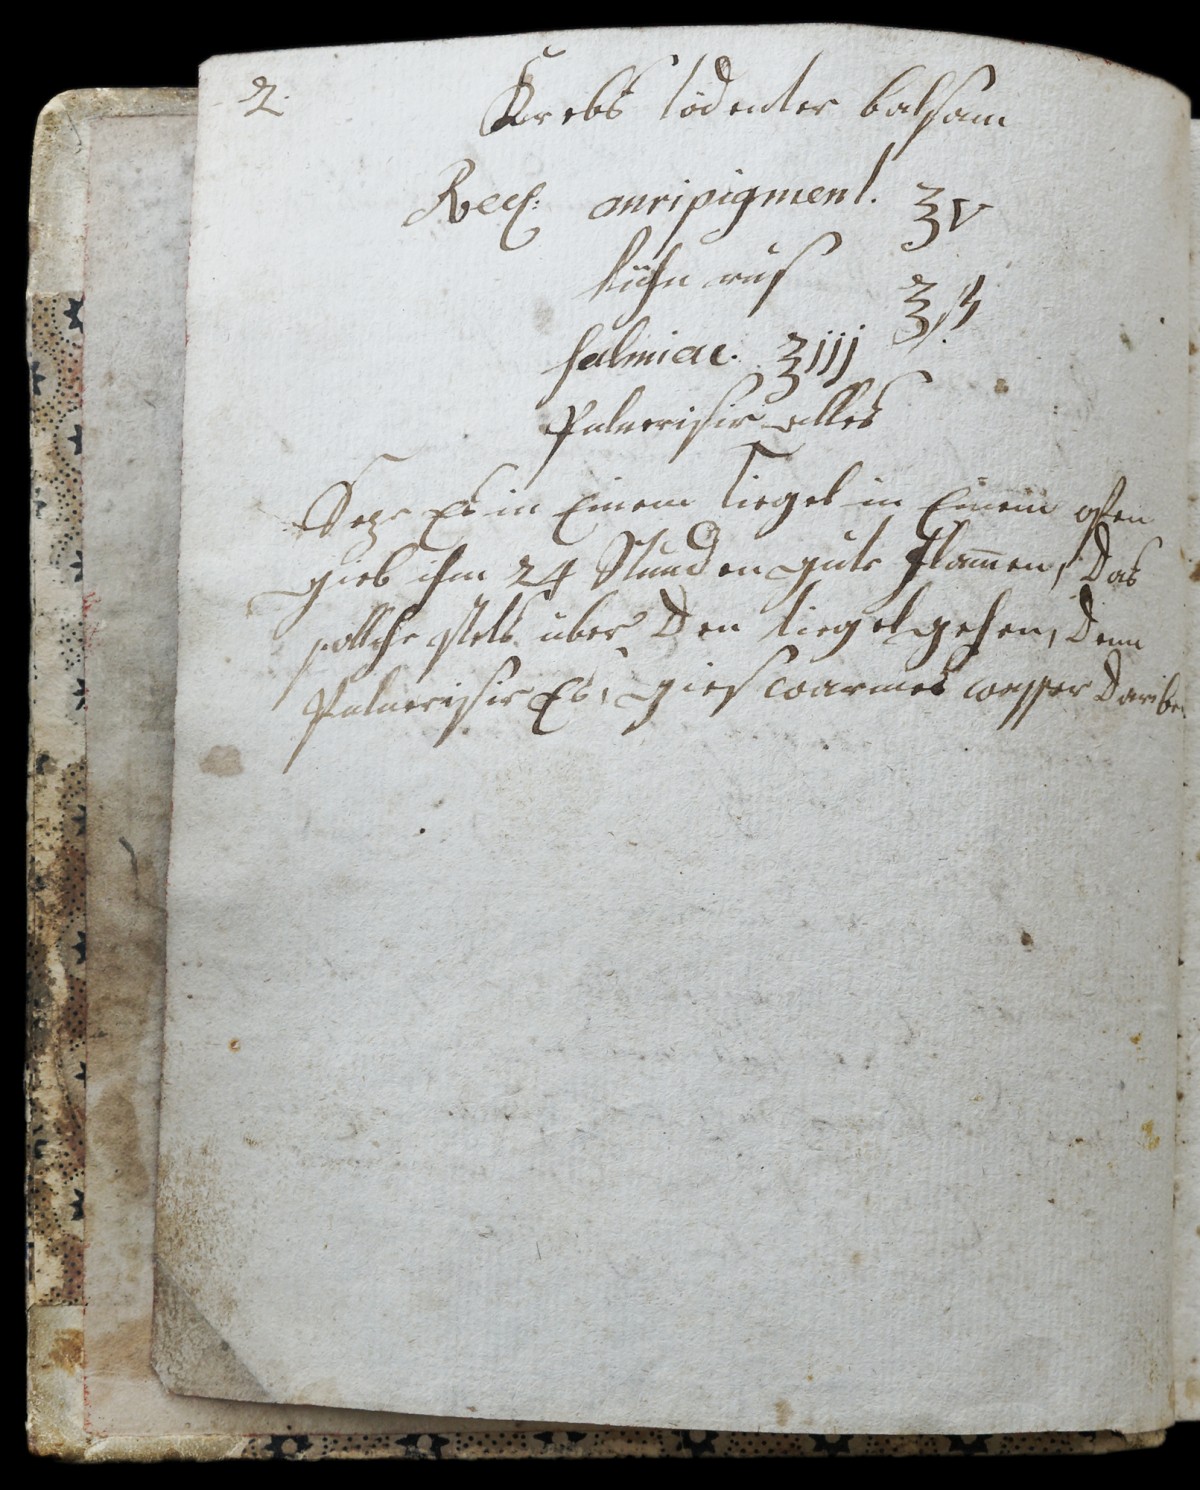 2.
Krebs tödenter balsam
Rec: auripigment. ʒv
kühn rus ʒ𝑠𝑠
salmiac. ʒiij
Pulverisir alles
Sez Es in Einem tiegel in Einem ofen
gieb ihm 24 Stunden gute flam̄en, Das
solche stets über Den tiegel gehen, Denn
Pulverisir Es, gies warmes wasser Dariber